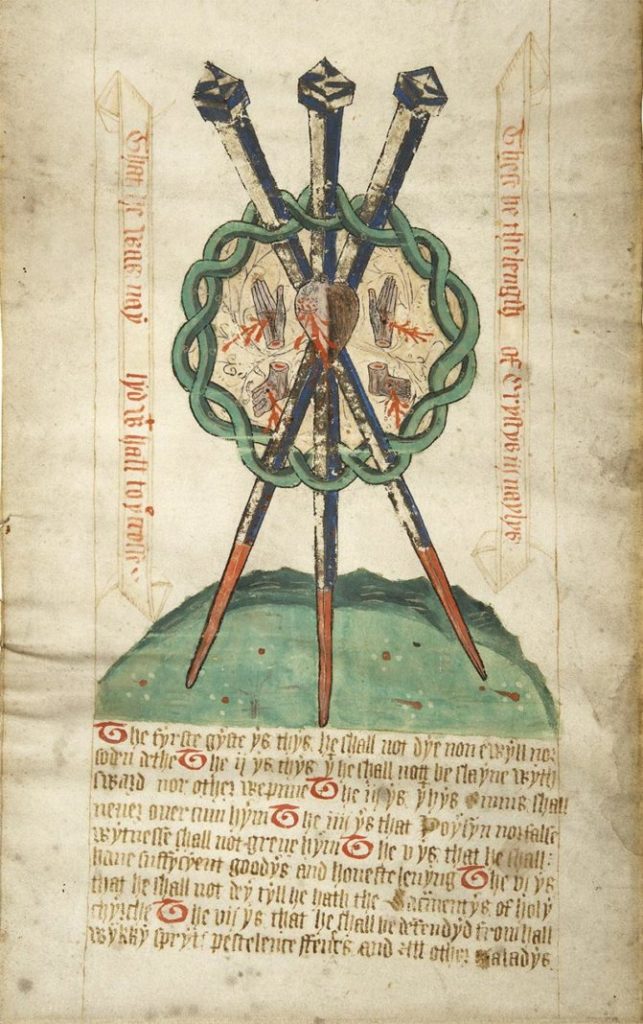 That
Thes be the length of Crystys iij naylys
The fyrste gyfte ys thys he shall not dye non ewyll nor
soden dethe The ij ys thys y he shall nott be slayne wyth
sward nor other wepine The iij ys y hys Enmis shall
never over cum hym The iiij ys that Poysyn nor false
wytnesse shall not greve hym The v ys that he shall:
have suffycyent goodys and honeste levyng The vi ys
that he shall not dey tyll he hath the Sacmentys of holy
chyrche The vij ys that he shall be defendyd from hall
wykky spryts pestelence ffevers and All other Maladys.